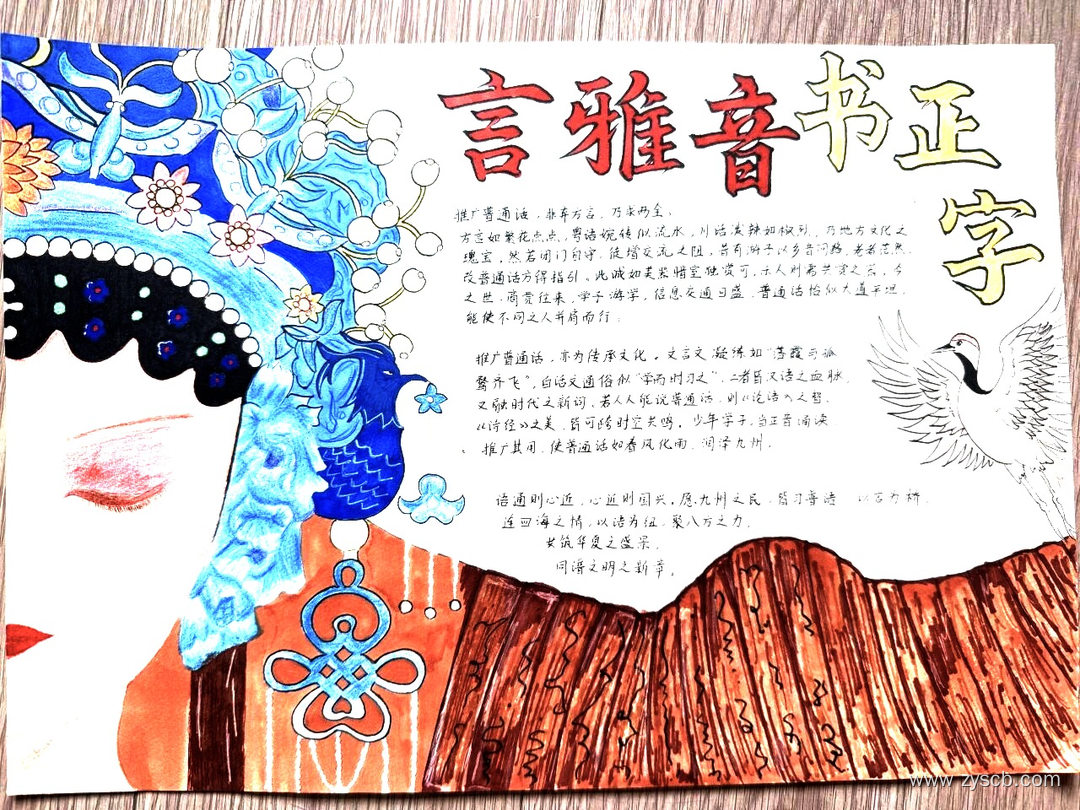 言雅音书正字
推广普通话,非弃方言,乃求两全。
方言如繁花点点,粤语婉转似流水,川话泼辣如椒烈,乃地方文化之
瑰宝,然若闭门自守,徒增交流之阻,昔有游子以乡音问路,老者茫然,
改普通话方得指引。此诚如美裘暗室独赏可,示人则需共赏之衣,今
之世,商贾往来,学子游学,信息交通日盛,普通话恰似大道平坦,
能使不同之人并肩而行。
推广普通话,亦为传承文化。文言文凝练如“落霞与孤
鹜齐飞”,白话文通俗似“学而时习之”,二者皆汉语之血脉,
又融时代之新词,若人人能说普通话,则《论语》之智,
《诗经》之美,皆可跨时空共鸣,少年学子,当正音诵读
推广其用,使普通话如春风化雨,润泽九州。
语通则心近,心近则国兴,愿九州之民,皆习普语 以言为桥,
连四海之情,以语为纽,聚八方之力,
共筑华夏之盛景,
同谱文明之新章。
www.zyscb.com